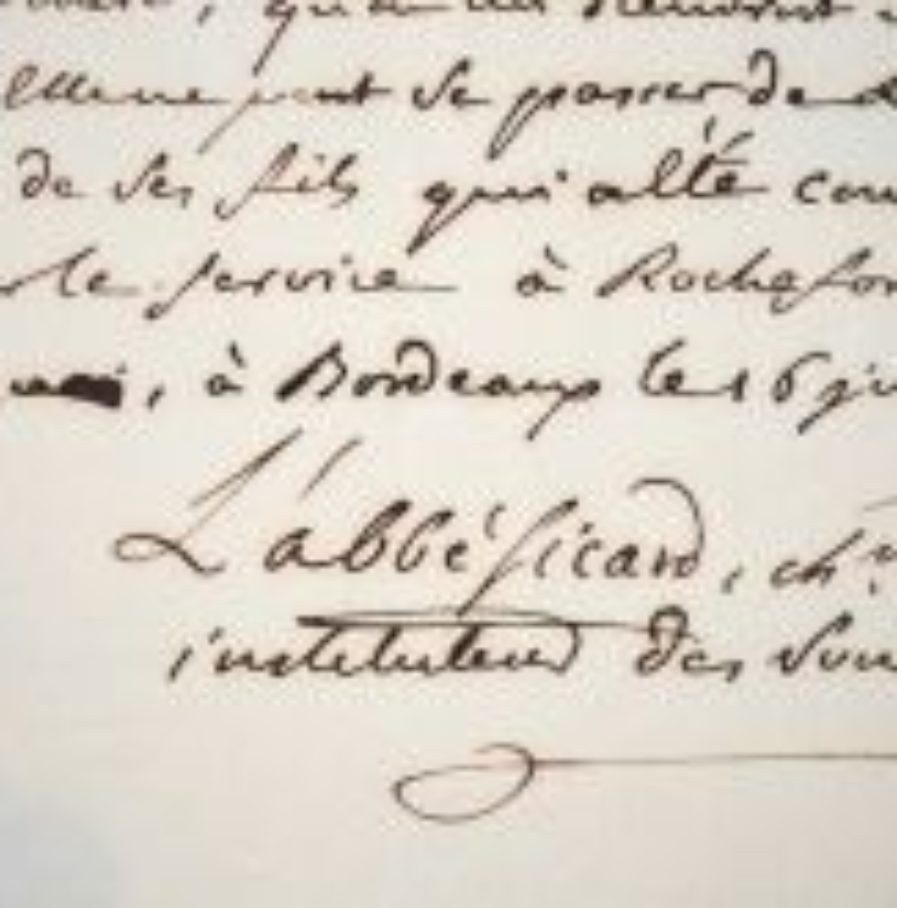 elle ne peut se passer de
de ses fils qui a été
le service à Rochefor
, à Bordeaux le 16 ju
L'abbé Sicard, chr
instituteur des Sour